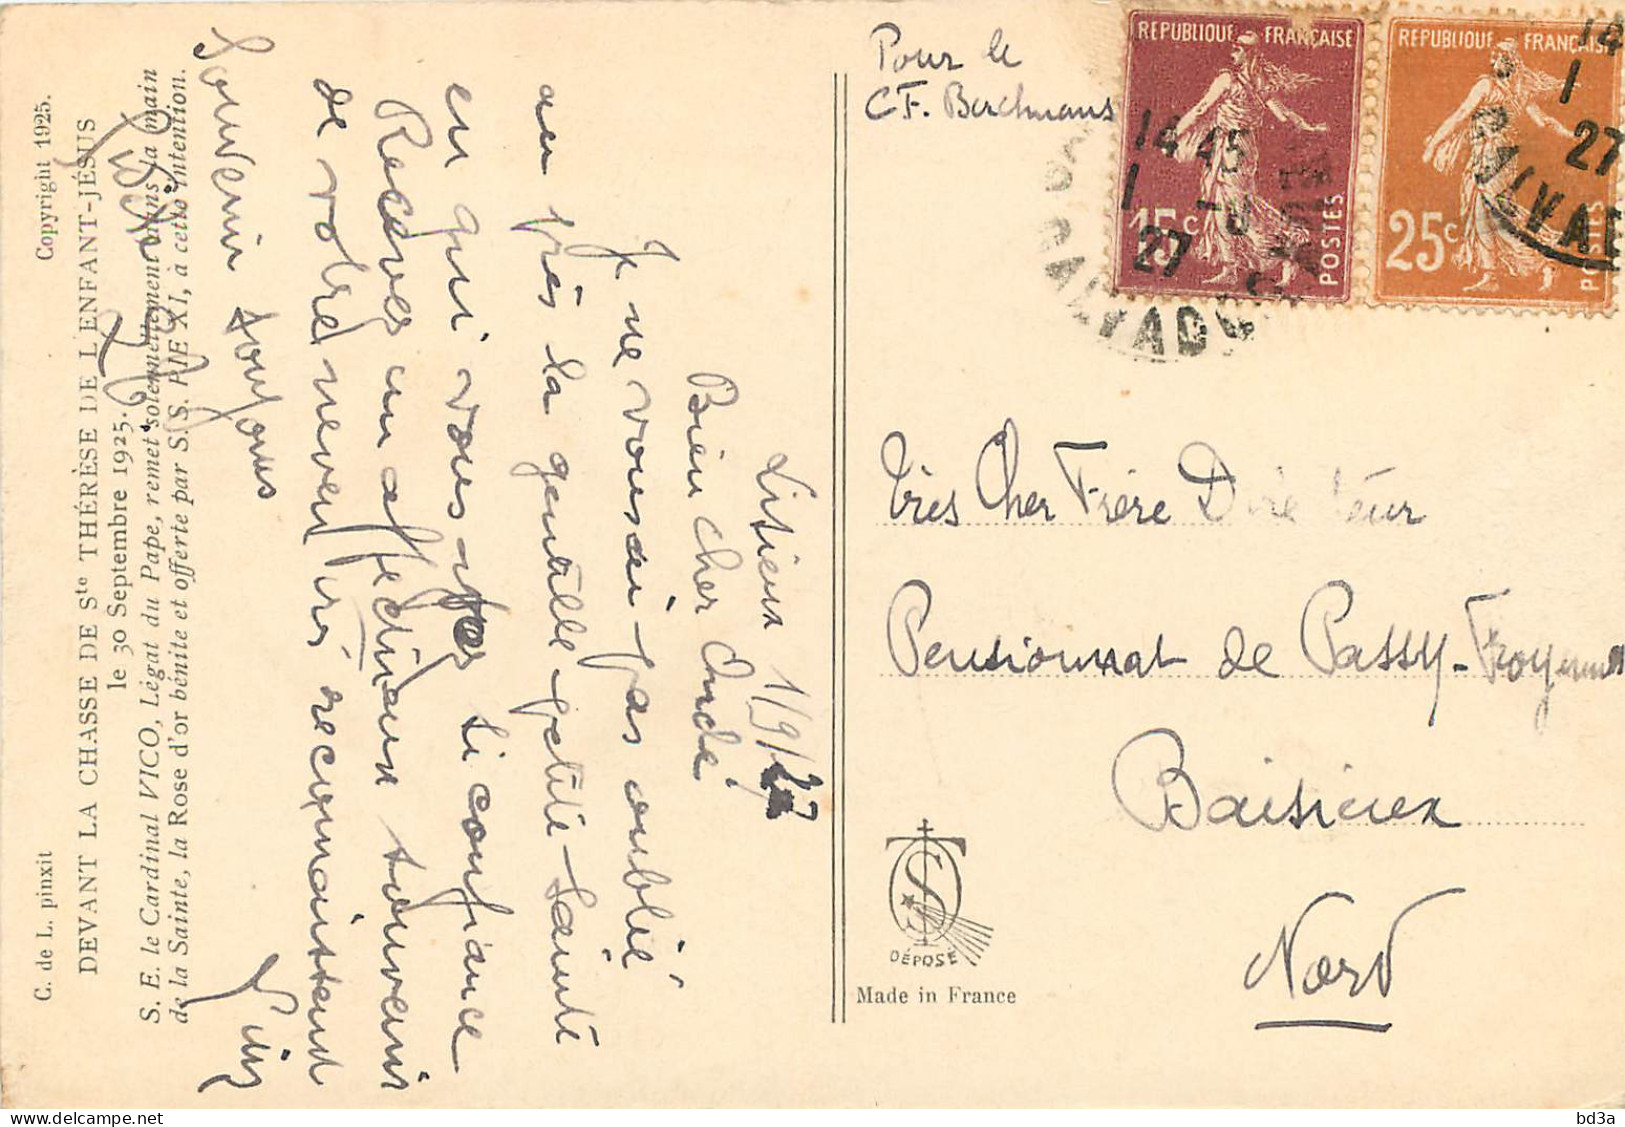 Pour le
C.F. Berchmans
REPUBLIQUE FRANÇAISE
15c
POSTES
REPUBLIQUE FRANÇAISE
25c
POSTES
14 45
1 -9
27
CALVADOS
14
1
27
CALVA
Très Cher Frère Directeur
Pensionnat de Passy-Froyennes
Baisieux
Nord
DÉPOSÉ
Made in France
Lisieux 1/9/27
Bien cher Oncle
Je ne vous ai pas oublié
au près la gentille petite Sainte
en qui vous avez si confiance
Recevez un affectueux souvenir
de votre neveu très reconnaissant
Souvenir toujours
C. de L. pinxit
Copyright 1925.
DEVANT LA CHASSE DE Ste THÉRÈSE DE L'ENFANT-JÉSUS
le 30 Septembre 1925.
S. E. le Cardinal VICO, Légat du Pape, remet solennellement dans la main
de la Sainte, la Rose d'or bénite et offerte par S. S. PIE XI, à cette intention.
bd3a